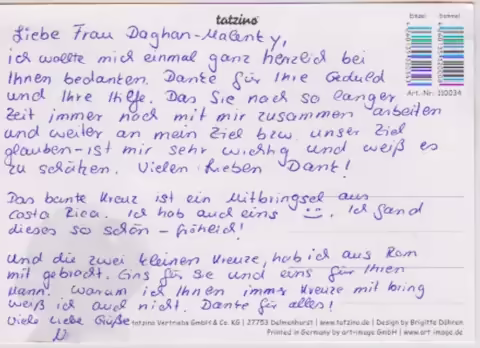 tatzino
Liebe Frau Daghan-Malenky,
ich wollte mich einmal ganz herzlich bei
Ihnen bedanken. Danke für Ihre Geduld
und Ihre Hilfe. Das Sie nach so langer
Zeit immer noch mit mir zusammen arbeiten
und weiter an mein Ziel bzw. unser Ziel
glauben - ist mir sehr wichtig und weiß es
zu schätzen. Vielen lieben Dank!
Einzel Sammel
Art.-Nr. 110034
Das bunte Kreuz ist ein Mitbringsel aus
Costa Rica. Ich hab auch eins :). Ich fand
dieses so schön - fröhlich!
Und die zwei kleinen Kreuze, hab ich aus Rom
mit gebracht. Eins für Sie und eins für Ihren
Mann. Warum ich Ihnen immer Kreuze mit bring
weiß ich auch nicht. Danke für alles!
Viele Liebe Grüße
tatzino Vertriebs GmbH & Co. KG | 27753 Delmenhorst | www.tatzino.de | Design by Brigitte Döhren
Printed in Germany by art-image GmbH | www.art-image.de